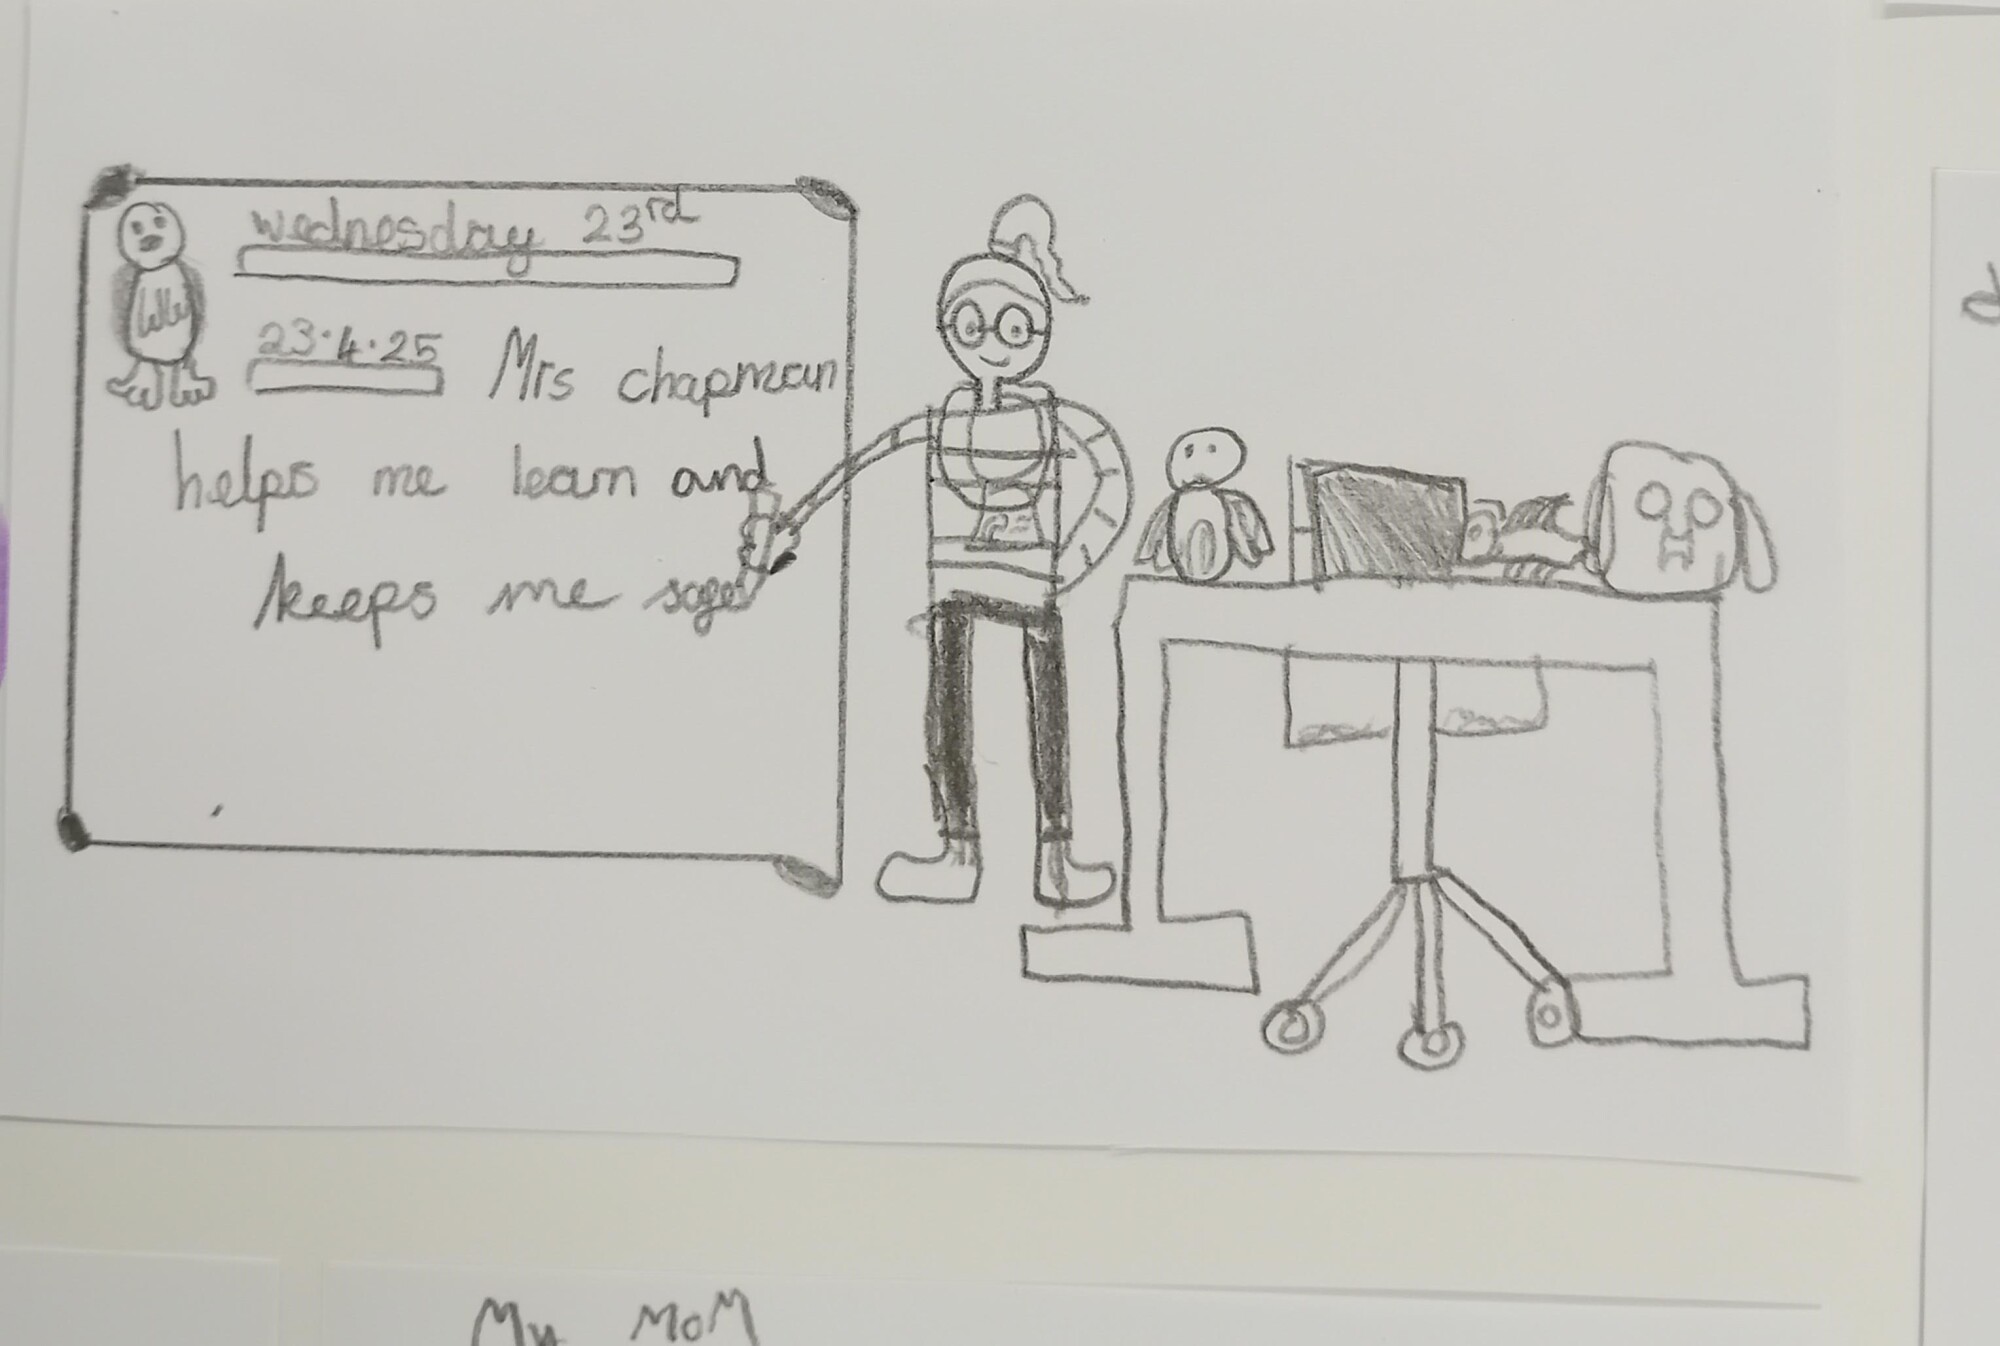 wednesday 23rd
23.4.25 Mrs chapman
helps me learn and
keeps me safe
My MOM